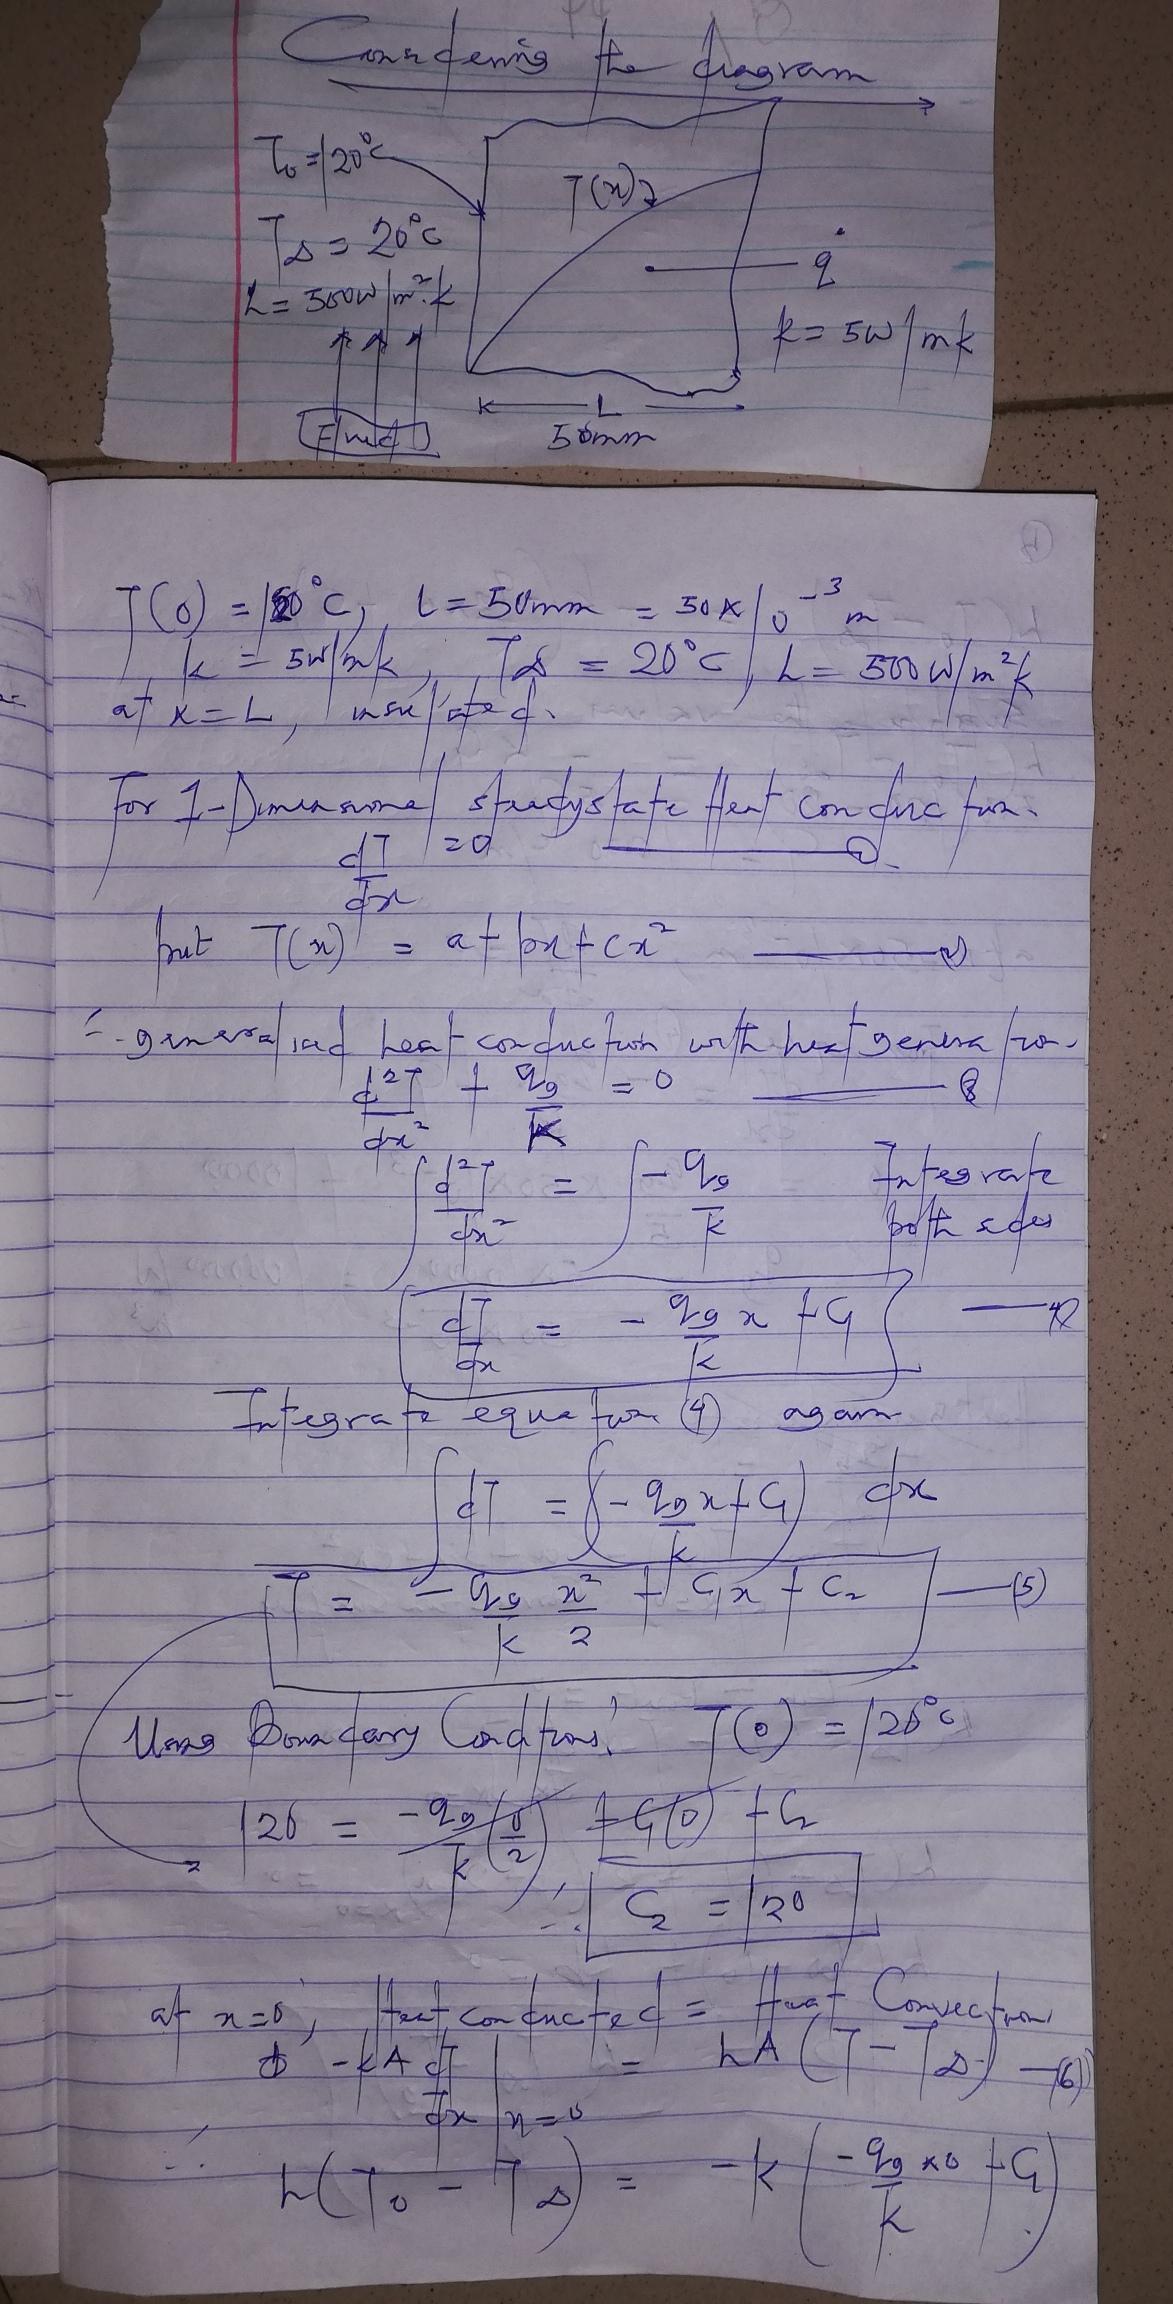 Considering the diagram
T₀ = 120°C
T(x)
T∞ = 20°C
q̇
h = 500W/m².k
k = 5W/mk
L
Fluid
50mm
T(0) = 120°C, L = 50mm = 50x10⁻³m
k = 5W/mk, T∞ = 20°C, h = 500W/m²k
at x=L, insulated.
for 1-Dimensional steadystate Heat conduction.
dT/dx = 0 ——— (1)
but T(x) = a+bx+cx² ——— (2)
∴ generalised heat conduction with heat generation.
d²T/dx² + qg/k = 0 ——— (3)
∫ d²T/dx² = ∫ -qg/k Integrate both sides
dT/dx = -qg/k x + C₁ ——— (4)
Integrate equation (4) again
∫dT = ∫(-qg/k x + C₁) dx
T = -qg/k x²/2 + C₁x + C₂ ——— (5)
Using Boundary Conditions! T(0) = 120°C
120 = -qg/k (0/2) + C₁(0) + C₂
∴ C₂ = 120
at x=0, Heat conducted = Heat Convection
-kA dT/dx | x=0 = hA (T - T∞) — (6)
∴ h(T₀ - T∞) = -k (-qg/k x0 + C₁)